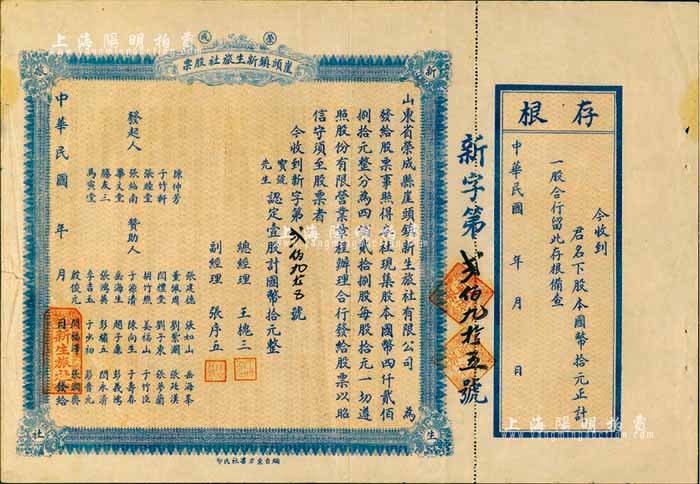 上海陽明拍賣
榮
成
崖頭鎮新生旅社股票
新
旅
生
社
山東省榮成縣崖頭鎮新生旅社有限公司 為
發給股票事照得本社現集股本國幣四仟貳佰
捌拾元整分為四佰貳拾捌股每股拾元一切遵
照股份有限營業章程辦理合行發給股票以昭
信守須至股票者
今收到新字第貳佰九拾五號
寶號
先生
認定壹股計國幣拾元整
總經理 王挑三
副經理 張序五
發起人
陳仲芳
于竹軒
張睦堂
張紘南
華文堂
勝友三
馬寅堂
贊助人
張建德 張如山 岳海峯
董佩周 劉紫瀾 張廷漢
閆禮堂 劉子東 張夢蘭
胡竹照 姜福山 于竹臣
于源清 陳向生 于壽春
岳海生 趙子康 彭義鴻
張鴻英 彭積五 閆永清
李吉五 于出初 彭晉元
殷俊元
中華民國 年 月 日發給
新生旅社
煙台東方書社代印
新字第貳佰九拾五號
存根
今收到
君名下股本國幣拾元正計
一股合行留此存根備查
中華民國 年 月 日
上海陽明拍賣
www.yangmingauction.com